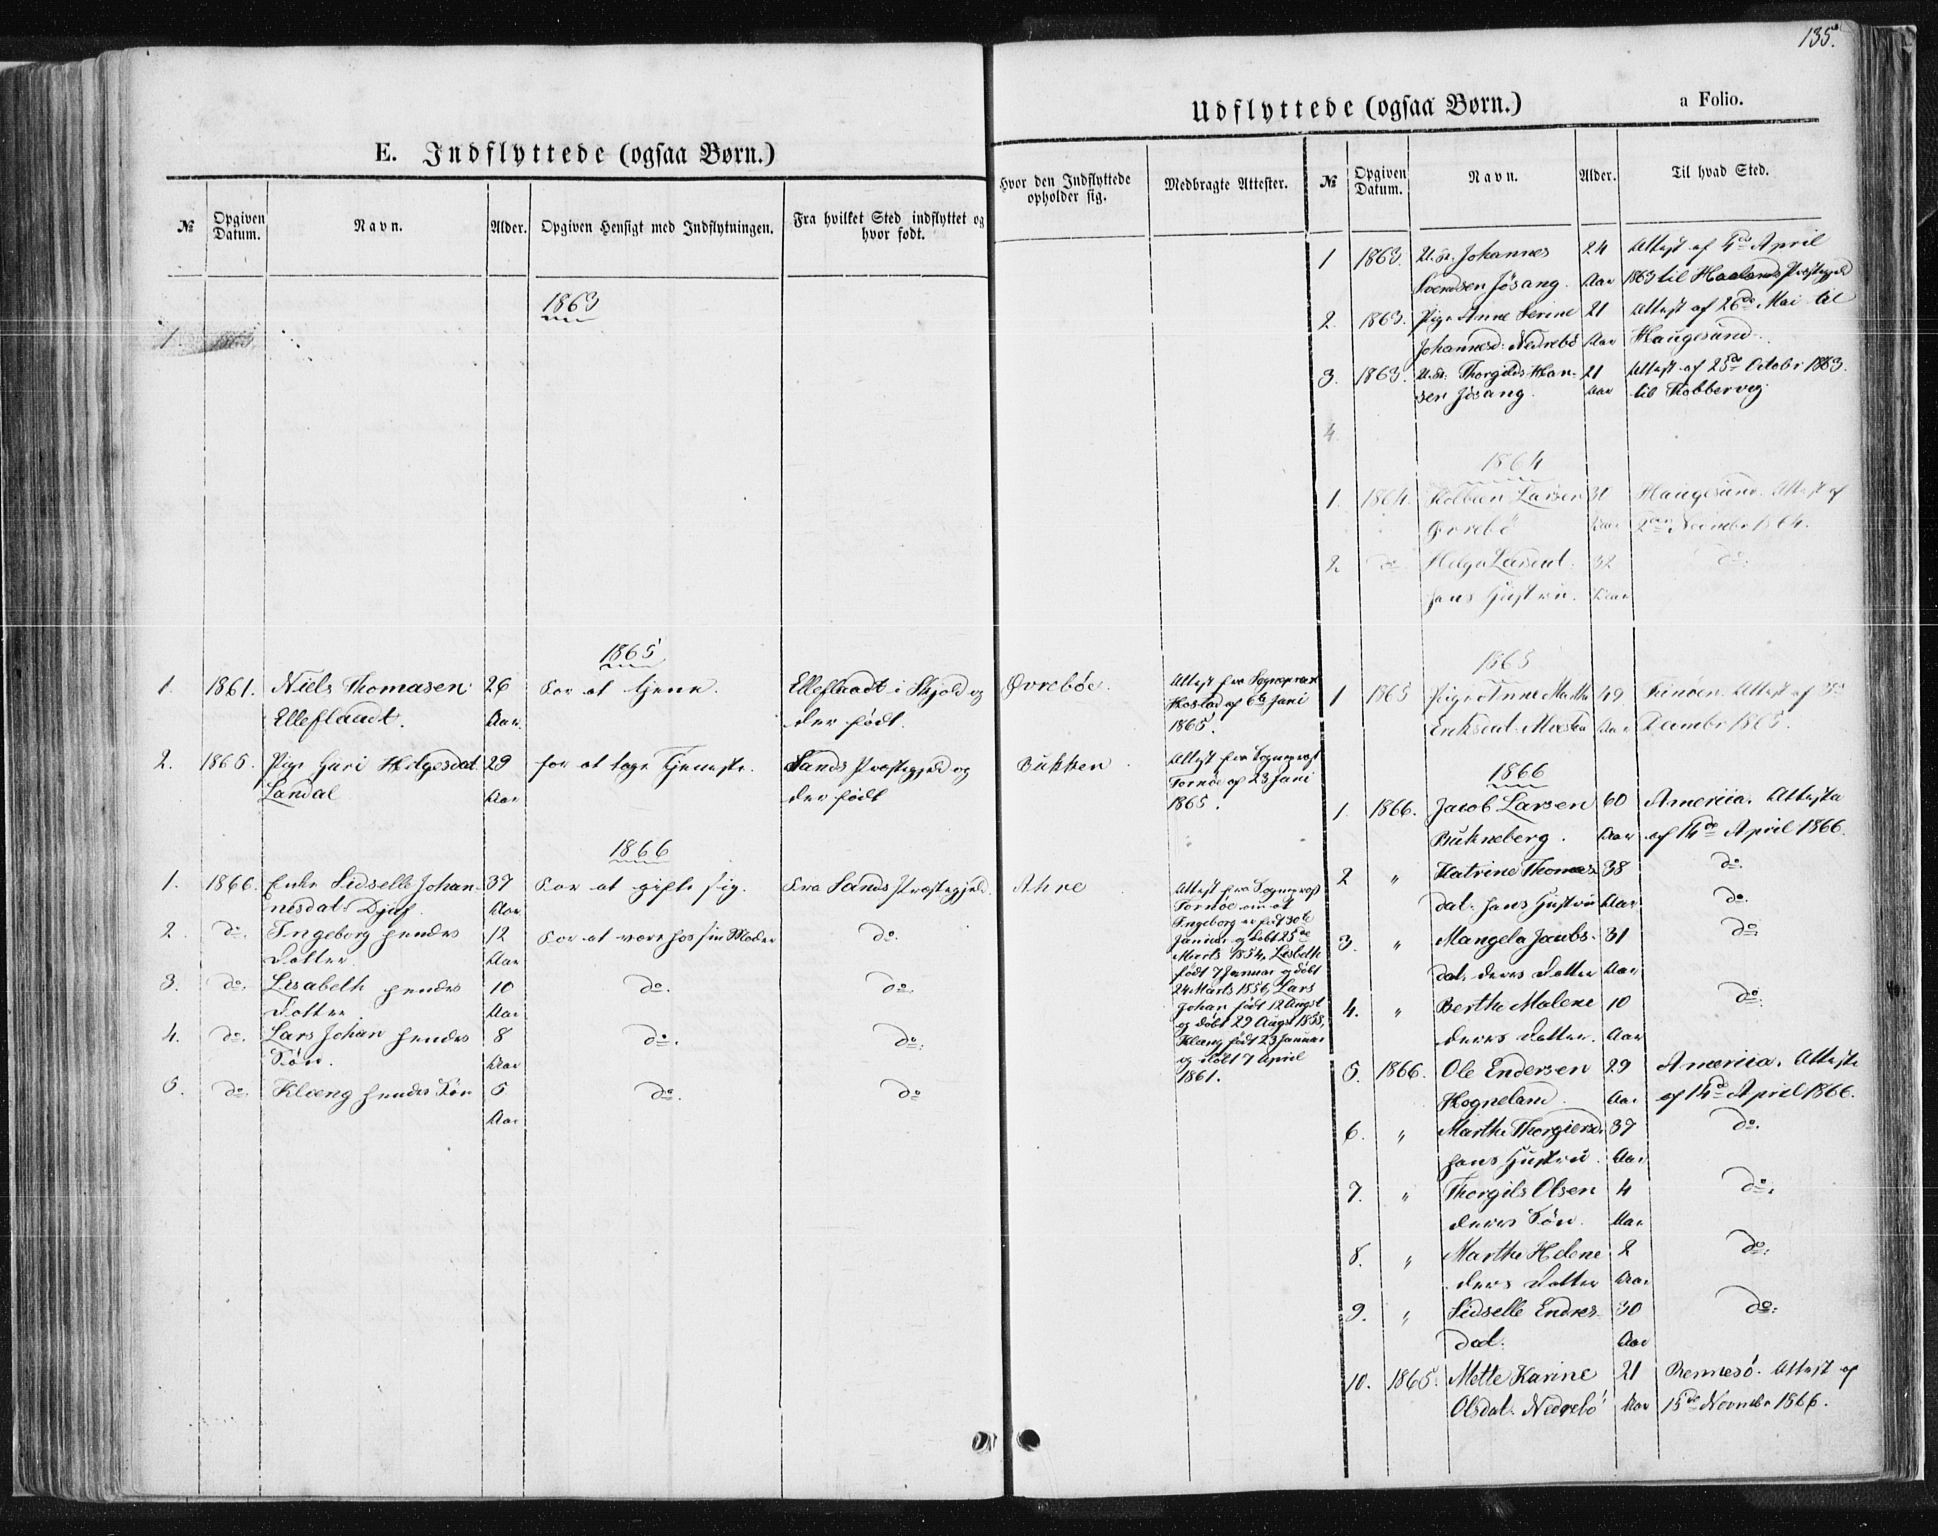 135.
E. Indflyttede (ogsaa Børn.)
№ Opgiven Datum. Navn. Alder. Opgiven Hensigt med Indflytningen. Fra hvilket Sted indflyttet og hvor født.
Hvor den Indflyttede opholder sig. Medbragte Attester.
1863
1
1865
1. 1861. Niels Thomasen 26 For at tjene. Elleflaadt i Skjold og Øvreböe. Attest fra Sognepræst
Elleflaadt. Aar. der født. af 6te Juni
1865.
2. 1865. Pige Guri Helgesdat 29 for at tage Tjeneste. Sands Præstegjeld og Bukken Attest fra Sogneprest
Landal Aar der født Tornöe af 23 Juni
1865.
1866
1. 1866. Enke Sidselle Johan- 37 For at gifte sig. Fra Sands Præstegjeld. Ahre Attest fra Sogneprest
nesdat. Djuf. Aar Tornöe om at
2. do. Ingeborg hendes 12 For at være hos sin Moder do. Ingeborg er født 30te
Datter Aar Januar og döbt 25de
Marts 1854, Lisbeth
3. do. Lisabeth hendes 10 do. do. født 7 Januar og döbt
Datter. Aar 24 Marts 1856, Lars
4. do. Lars Johan hendes 8 do. do. Johan født 12 August
Søn. Aar og döbt 29 August 1858,
5. do. Klæng hendes Søn 5 do. do. Klæng født 23 Januar
Aar og döbt 7 April
1861.
Udflyttede (ogsaa Børn.) a Folio.
№ Opgiven Datum. Navn. Alder. Til hvad Sted.
1 1863. U.K. Johannes 24 Attest af 4de April
Svendsen Jösang. Aar 1863 til Haalands Præstegjeld
2. 1863. Pige Anne Serine 21 Attest af 26de Mai til
Johannesd: Nedrebö Aar Haugesund.
3. 1863. U.K. Thorgils Han- 21 Attest af 25de October 1863.
sen Jösang. Aar til Kobbervig
4.
1864
1. 1864. Kolbein Larsen 30 Haugesund. Attest af
Övrebö Aar November 1864.
2 do. Helga Larsdat: 32 do.
hans Hustru. Aar
1865
1 1865 Pige Anne Marthe 49 Attest af
Eriksdat: Aar December 1865.
1866
1. 1866. Jacob Larsen 60 America. Attester
Bukneberg. Aar af 14de April 1866.
2 " Katrine Thomas- 38 do.
dat. hans Hustru Aar do.
3. " Mangela Jacobs- 31 do.
dat. deres Datter Aar
4. " Berthe Malene 10 do.
deres Datter. Aar
5. 1866. Ole Endersen 29 America. Attester
Hogneland. Aar af 14de April 1866.
6. " Marthe Thorgiersd. 37 do.
hans Hustru. Aar
7. " Thorgils Olsen 4 do.
deres Søn. Aar
8. " Marthe Helene 2 do.
deres Datter Aar
9. " Sidselle Endres- 30 do.
dat. Aar
10. 1865. Mette Karine 21 Rennesö. Attest af
Olsdat. Nedrebö Aar 15de November 1866.